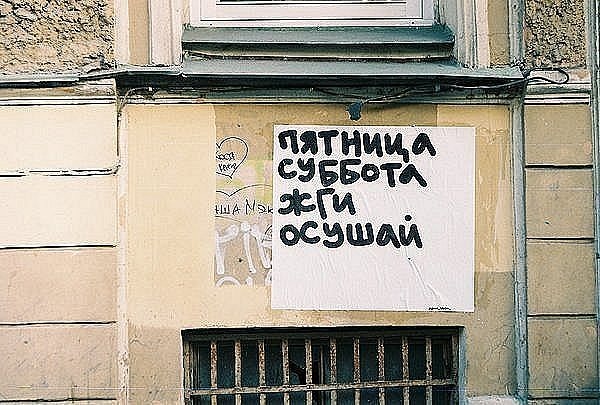 ПЯТНИЦА
СУББОТА
ЖГИ
ОСУШАЙ